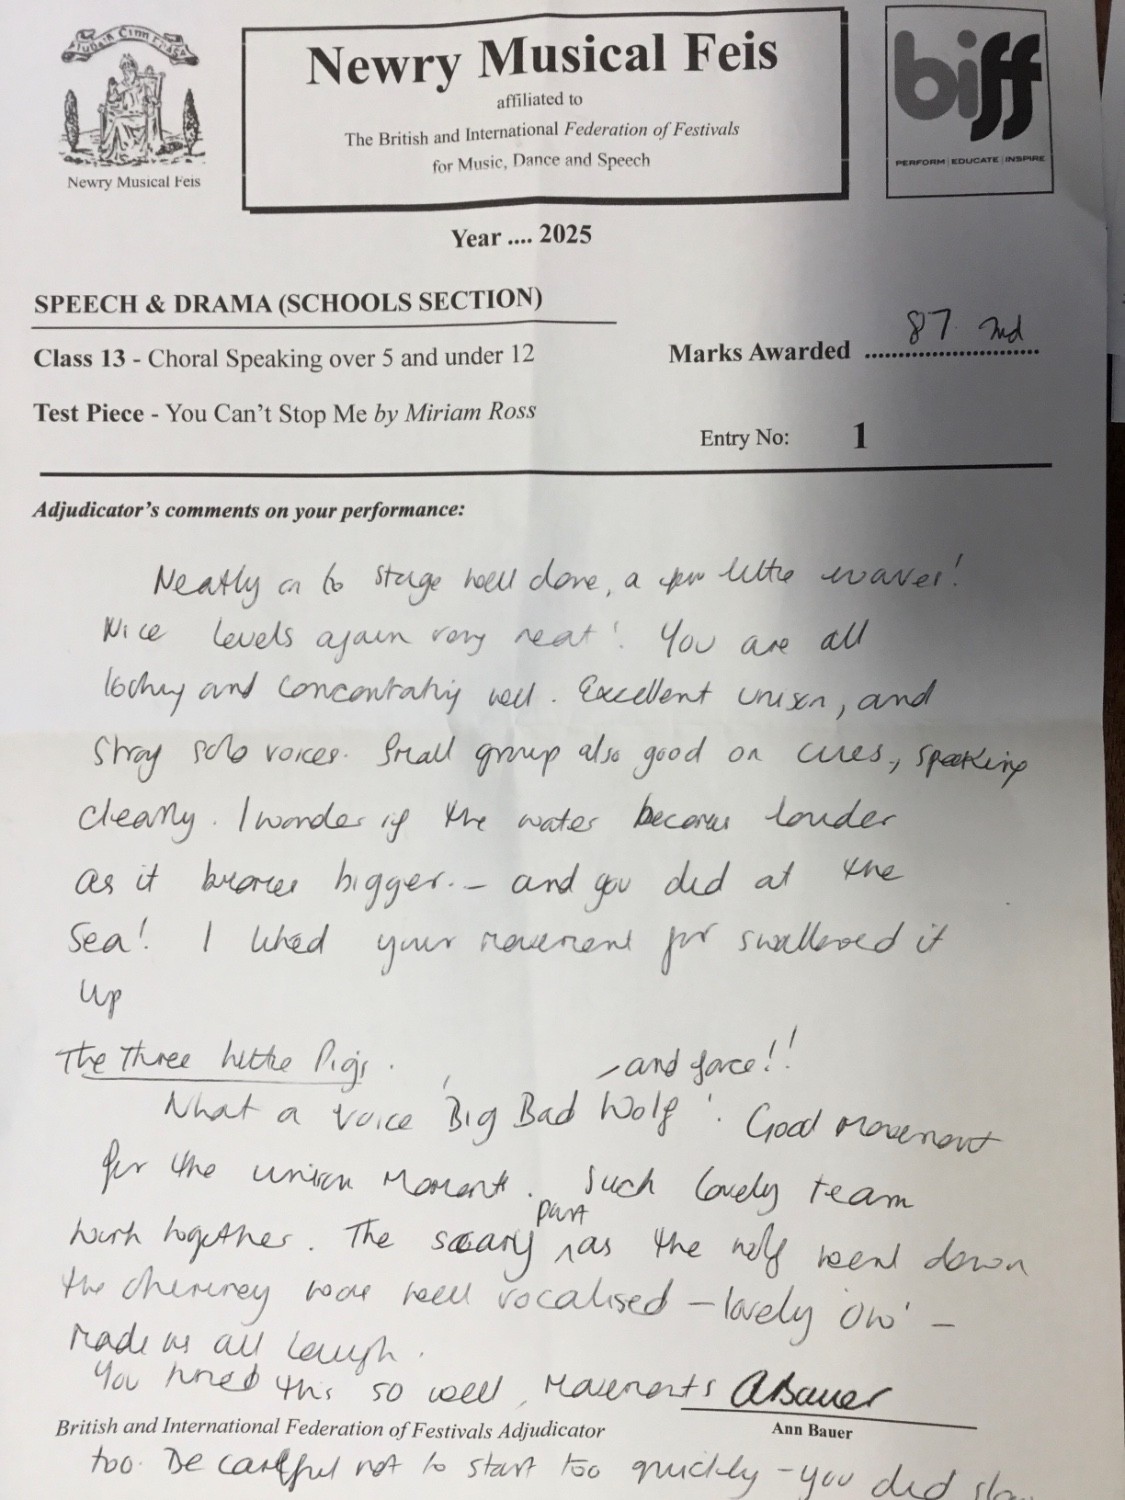 Newry Musical Feis
affiliated to
The British and International Federation of Festivals
for Music, Dance and Speech
Newry Musical Feis
biff
PERFORM | EDUCATE | INSPIRE
Year .... 2025
SPEECH & DRAMA (SCHOOLS SECTION)
Class 13 - Choral Speaking over 5 and under 12
Marks Awarded 87. 2nd
Test Piece - You Can't Stop Me by Miriam Ross
Entry No: 1
Adjudicator's comments on your performance:
Neatly on to stage well done, a few little waves!
Nice levels again very neat! You are all
looking and concentrating well. Excellent unison, and
strong solo voices. Small group also good on cues, speaking
clearly. I wonder if the water becomes louder
as it becomes bigger.. – and you did at the
sea! I liked your movement for swallowed it
up
The Three Little Pigs.
– and face!!
What a voice 'Big Bad Wolf'. Good movement
for the unison moment. Such lovely team
work together. The scary part as the wolf went down
the chimney was well vocalised – lovely 'ow' –
made us all laugh.
You timed this so well, movements ABauer
British and International Federation of Festivals Adjudicator
Ann Bauer
too. Be careful not to start too quickly – you did